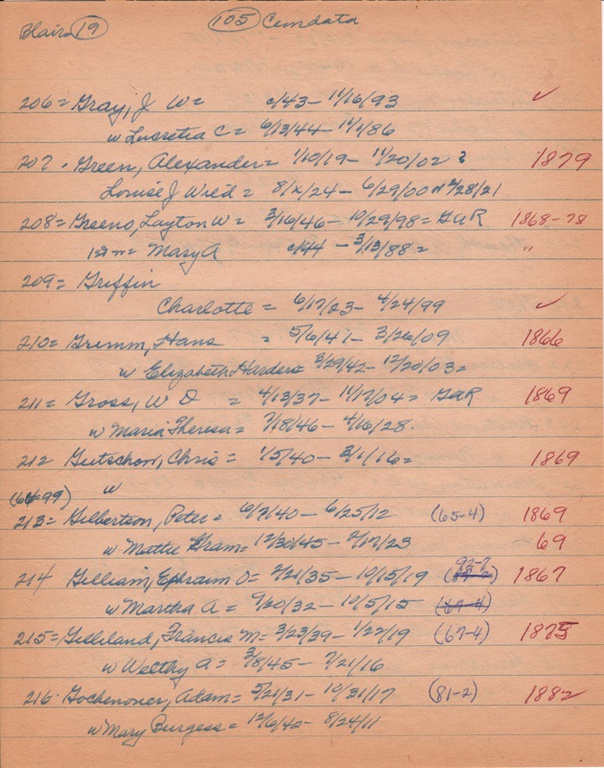 Blair 19 105 Cemdata
206= Gray, J W= c/43- 11/16/93 ✓
w Lucretia C= 6/13/44- 11/1/86
207. Green, Alexander= 1/10/19- 11/20/02 ? 1879
Louise J Wreid= 8/x/24- 6/29/00
208= Greeno, Layton W= 3/16/46- 10/29/98= GAR 1868-78
1st m= Mary A c/44 - 3/13/88= "
209= Griffin
Charlotte= 6/17/23- 4/24/99 ✓
210= Grimm, Hans = 5/6/41- 3/26/09 1866
w Elizabeth Harders 3/29/42- 12/20/03=
211= Gross, W O = 4/13/37- 11/17/04= GAR 1869
w Maria Theresa= 7/18/46- 4/16/28.
212 Gutschow, Chris= 1/5/40- 3/1/16= 1869
w
213= Gilbertson, Peter= 6/7/40- 6/25/12 (65-4) 1869
w Mattie Gram= 12/30/45- 2/17/23 69
214 Gilliam, Ephraim O= 2/21/35- 10/15/19 (92-7) 1867
w Martha A= 9/20/32- 10/5/15 (67-4)
215= Gilliland, Francis M= 3/23/39- 1/22/19 (67-4) 1875
w Welthy A= 3/8/45- 7/21/16
216. Gochenouer, Adam= 5/21/31- 10/31/17 (81-2) 1882
w Mary Burgess= 12/6/42- 8/24/11